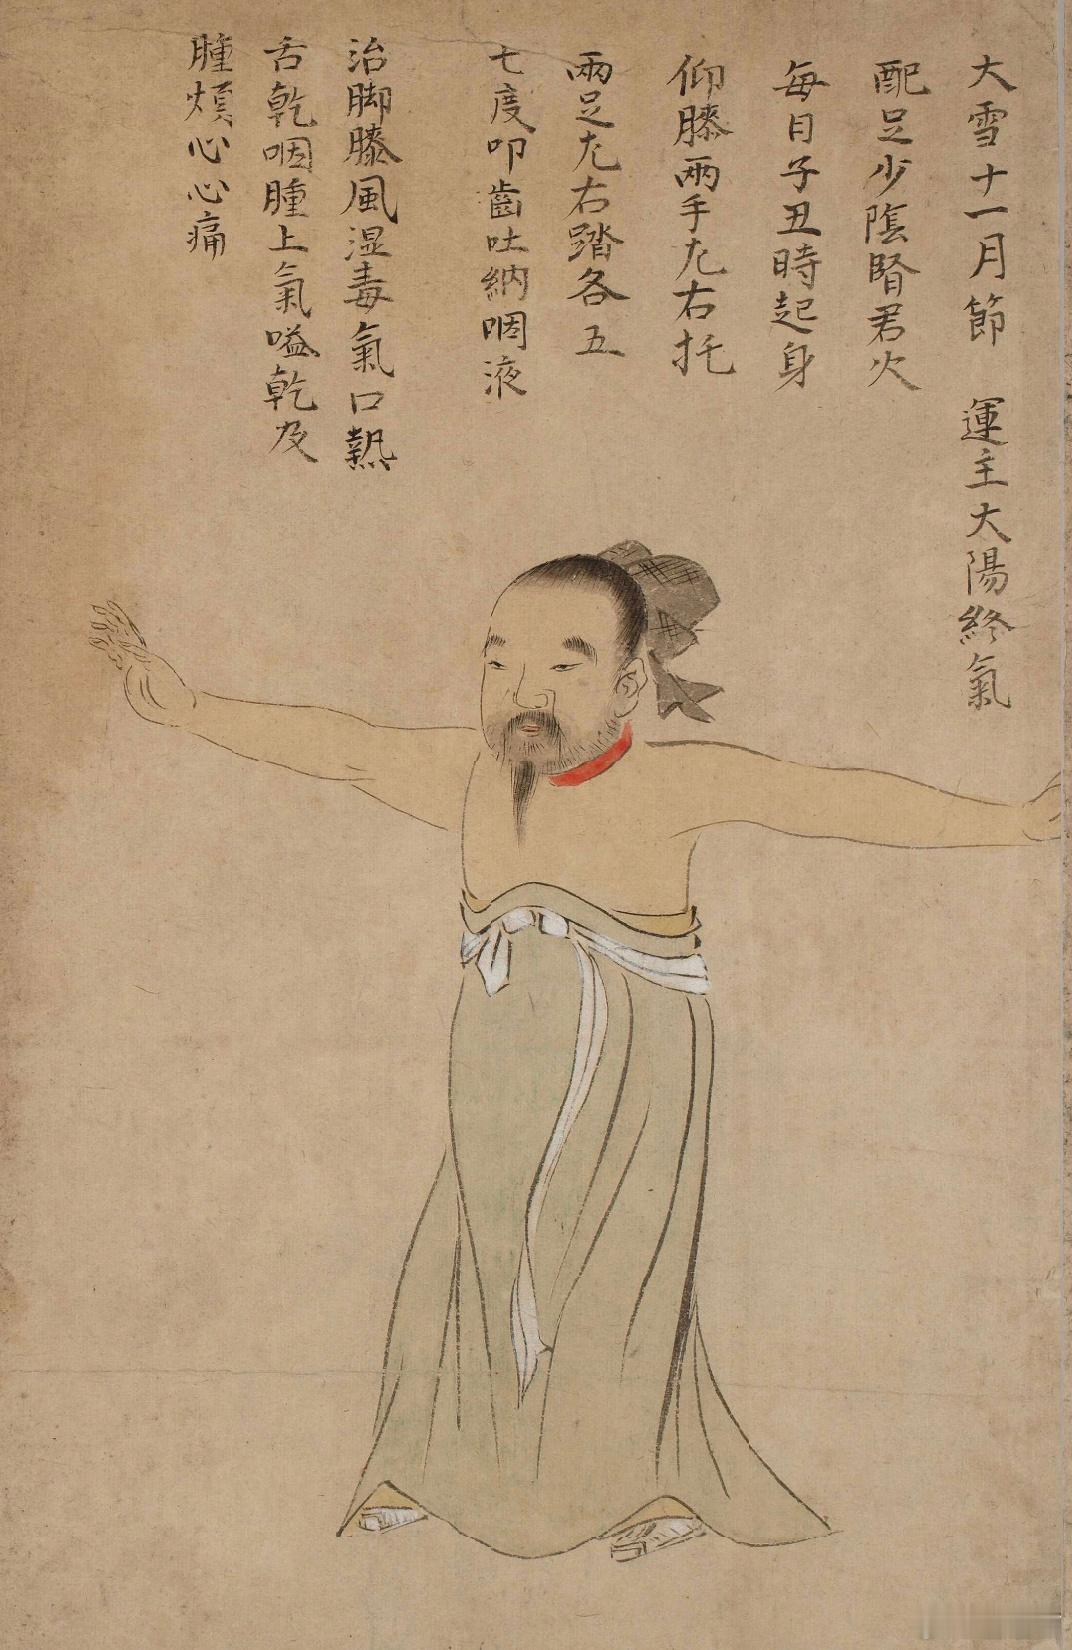 大雪十一月節　運主大陽終氣
配足少陰腎君火
每日子丑時起身
仰膝兩手左右托
兩足左右踏各五
七度叩齒吐納咽液
治脚膝風湿毒氣口熱
舌乾咽腫上氣嗌乾及
腫煩心心痛